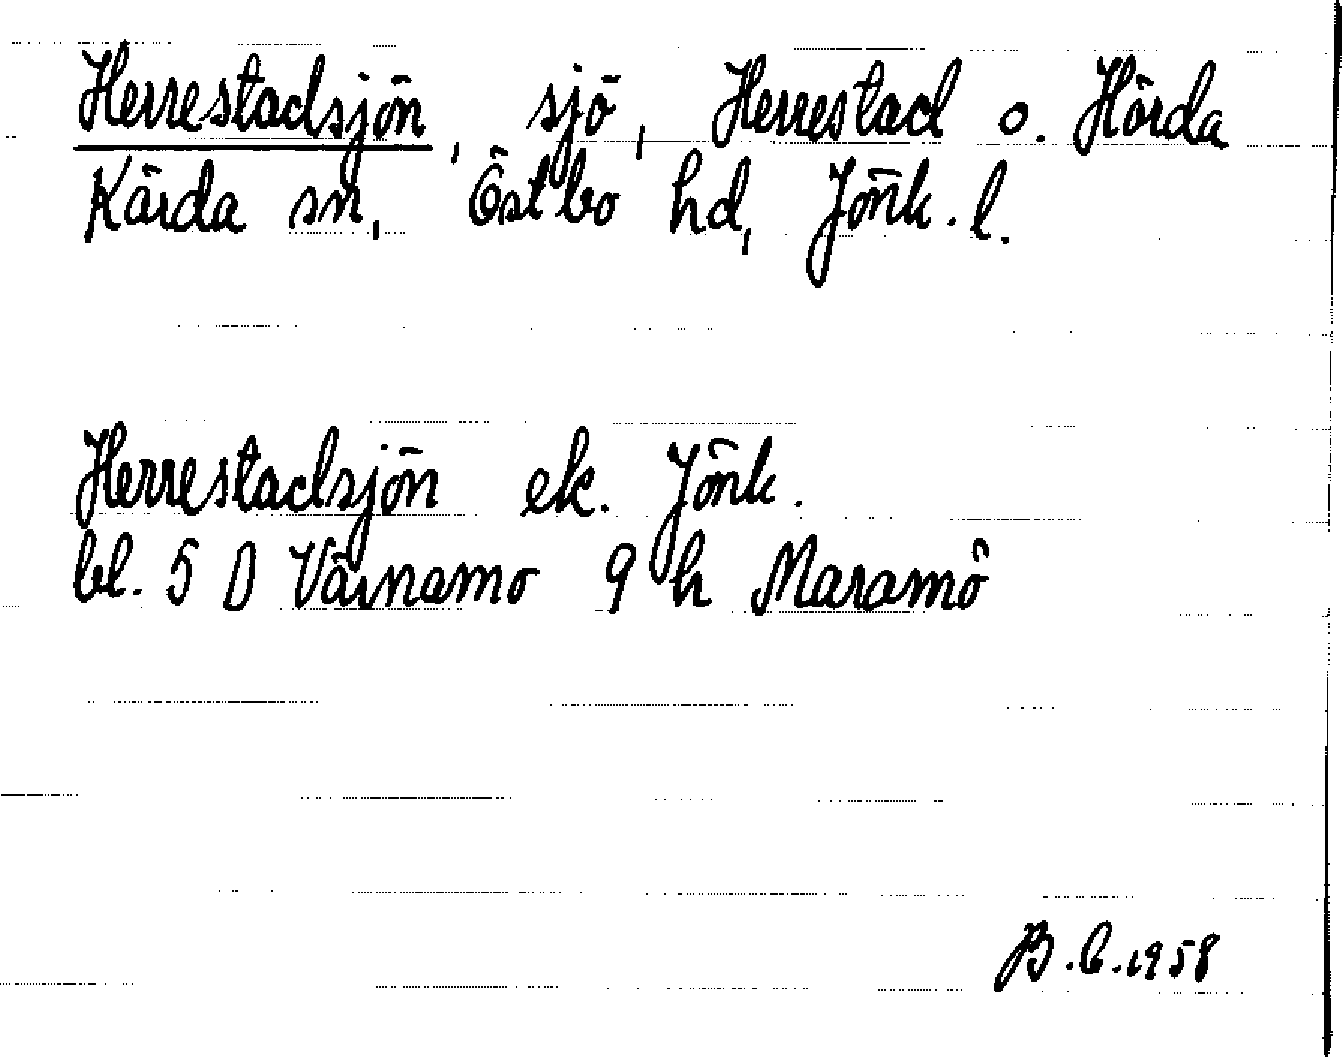 Herrestadsjön, sjö, Herrestad o. Hörda
Kärda sn, Östbo hd, Jönk. l.
Herrestadsjön ek. Jönk.
bl. 5 D Värnamo 9 h Maramö
B.C.1958